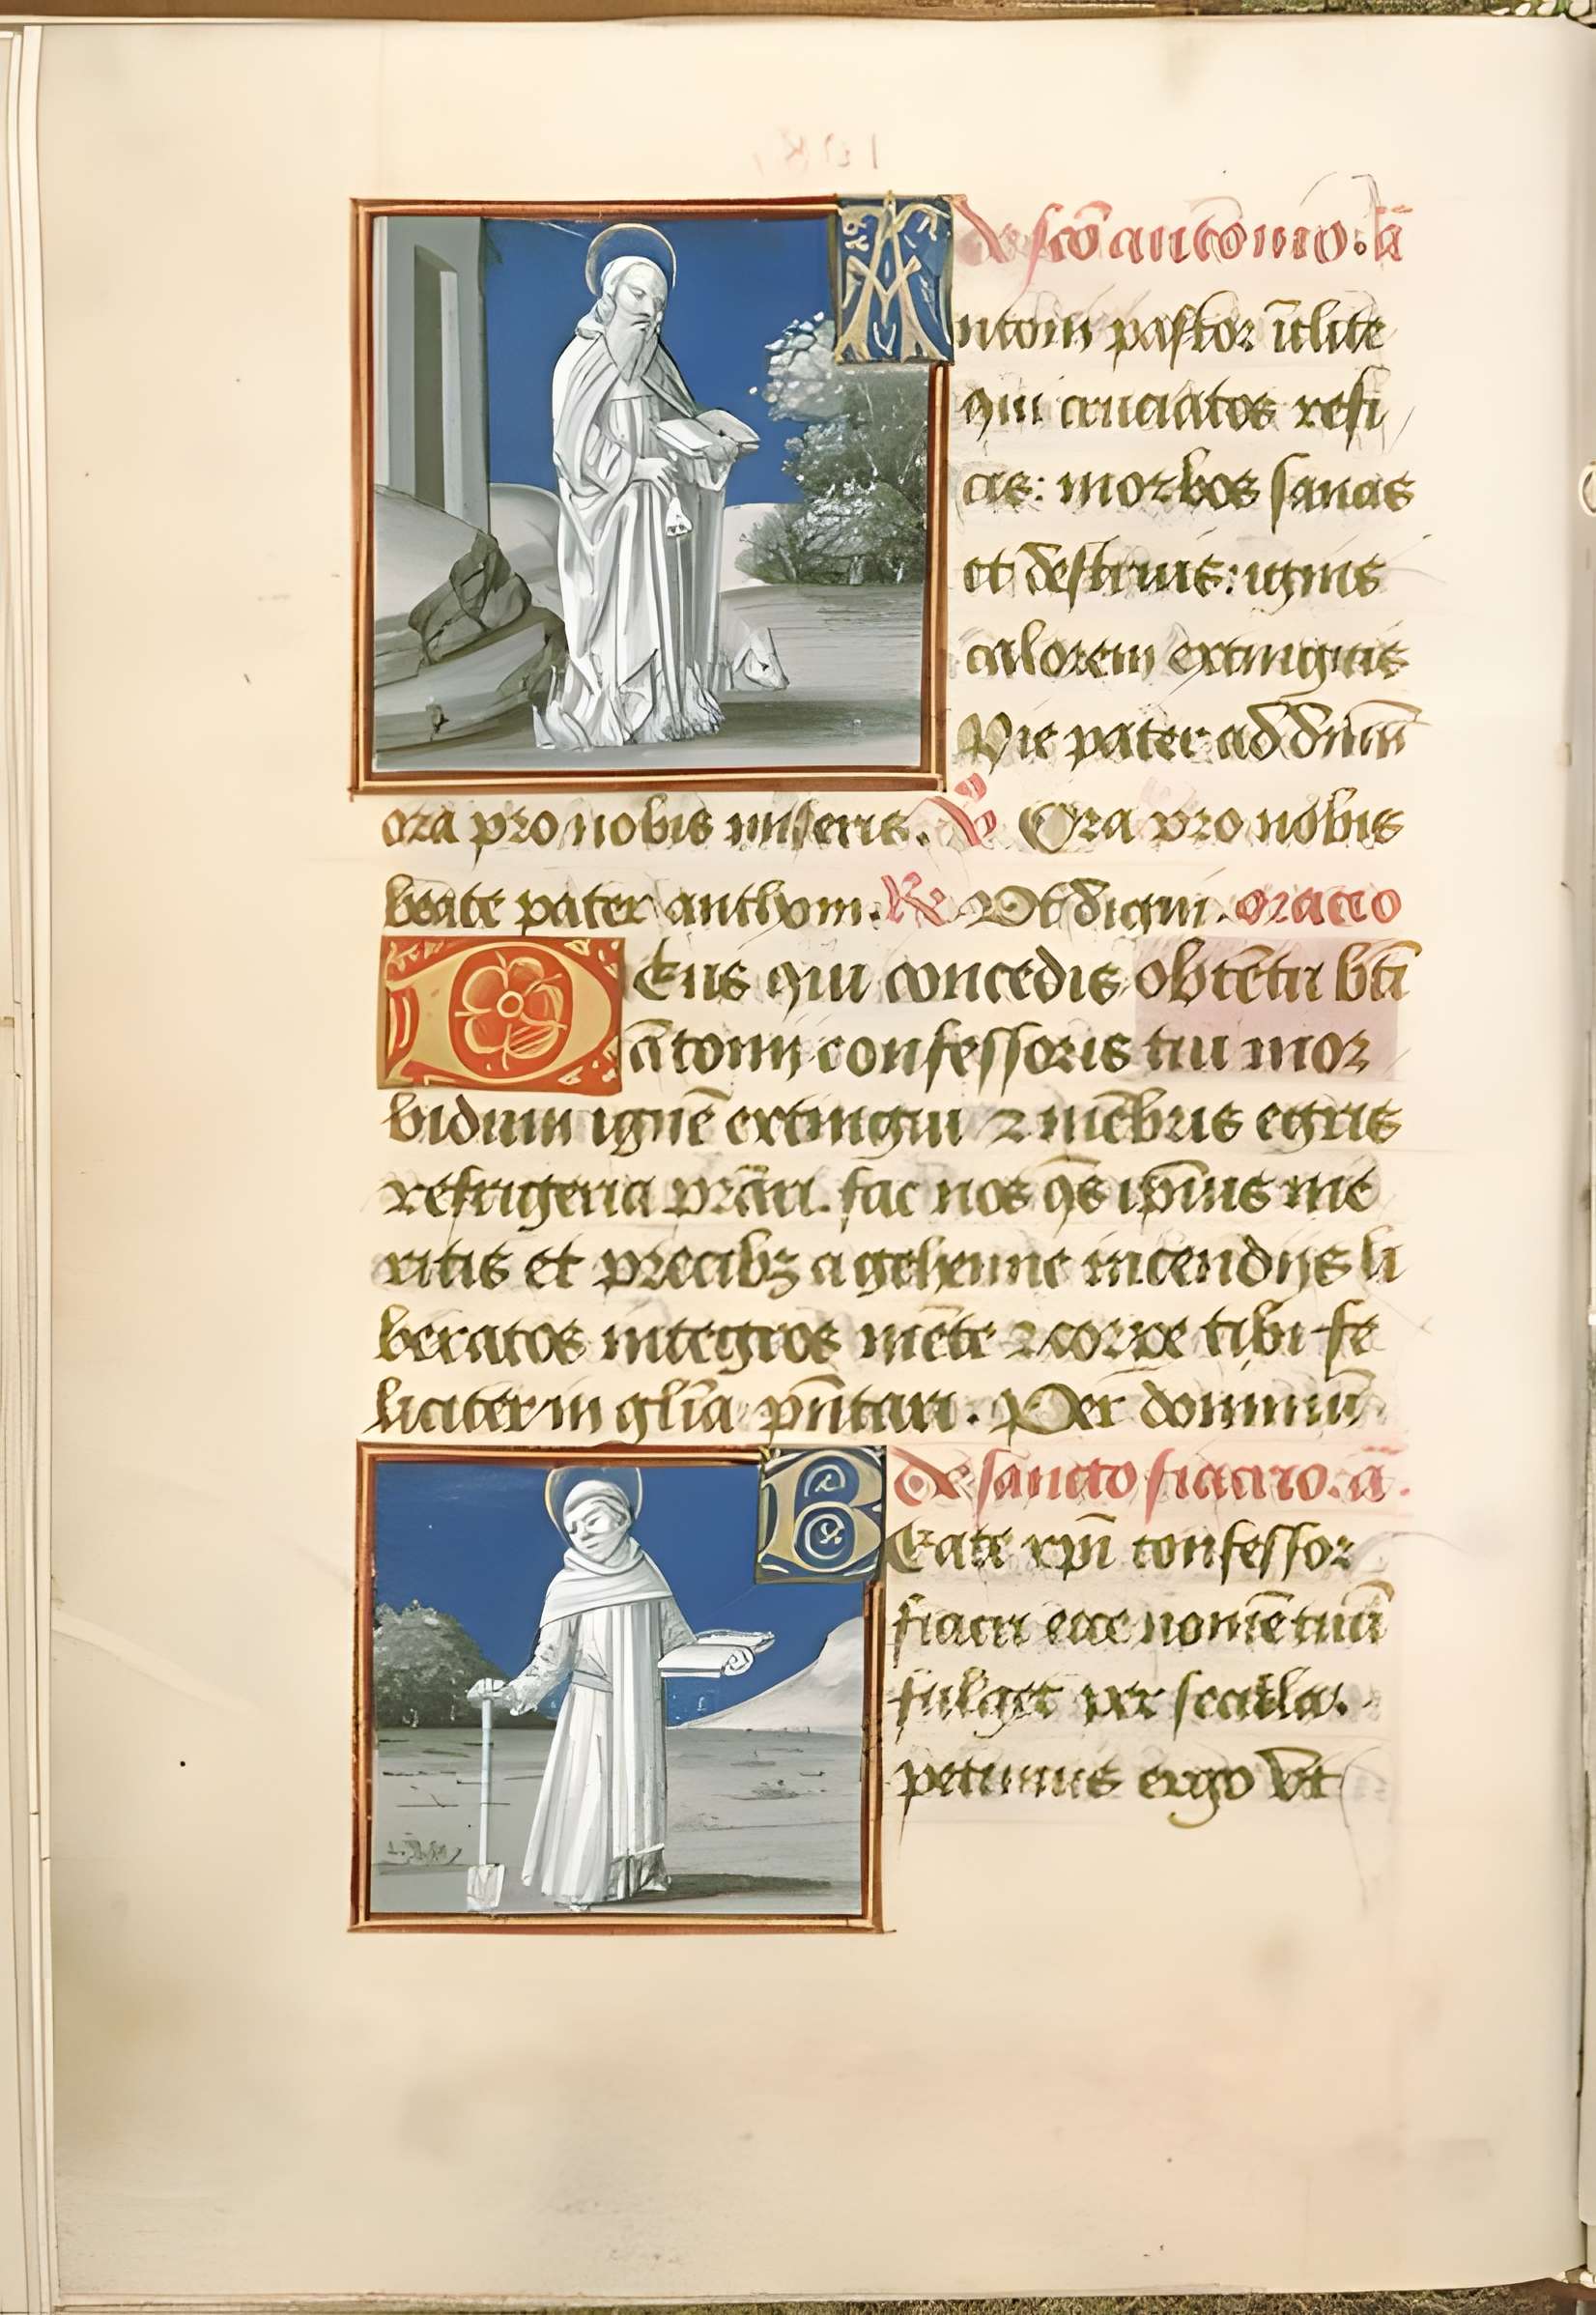 De sco antonio. añ
Antoni pastor iclite
qui cruciatos refi
cis: morbos sanas
et destruis: ignis
calorem extinguis
Pie pater ad dnm̄
ora pro nobis miseris. ℣ Ora pro nobis
beate pater anthoni. ℟ Vt digni. oracio
Deus qui concedis obtētu bti
ātonij confessoris tui mor
bidum ignē extingui ⁊ mēbris egris
refrigeria prāri. fac nos qs ipius me
ritis et precibꝫ a gehenne incendijs li
beratos integros mēte ⁊ corpe tibi fe
liciter in glīa pn̄tari. Per dominū
De sancto fiacro. añ.
Beate xpī confessor
fiacri ecce nomē tuū
fulget per secula.
petimus ergo vt